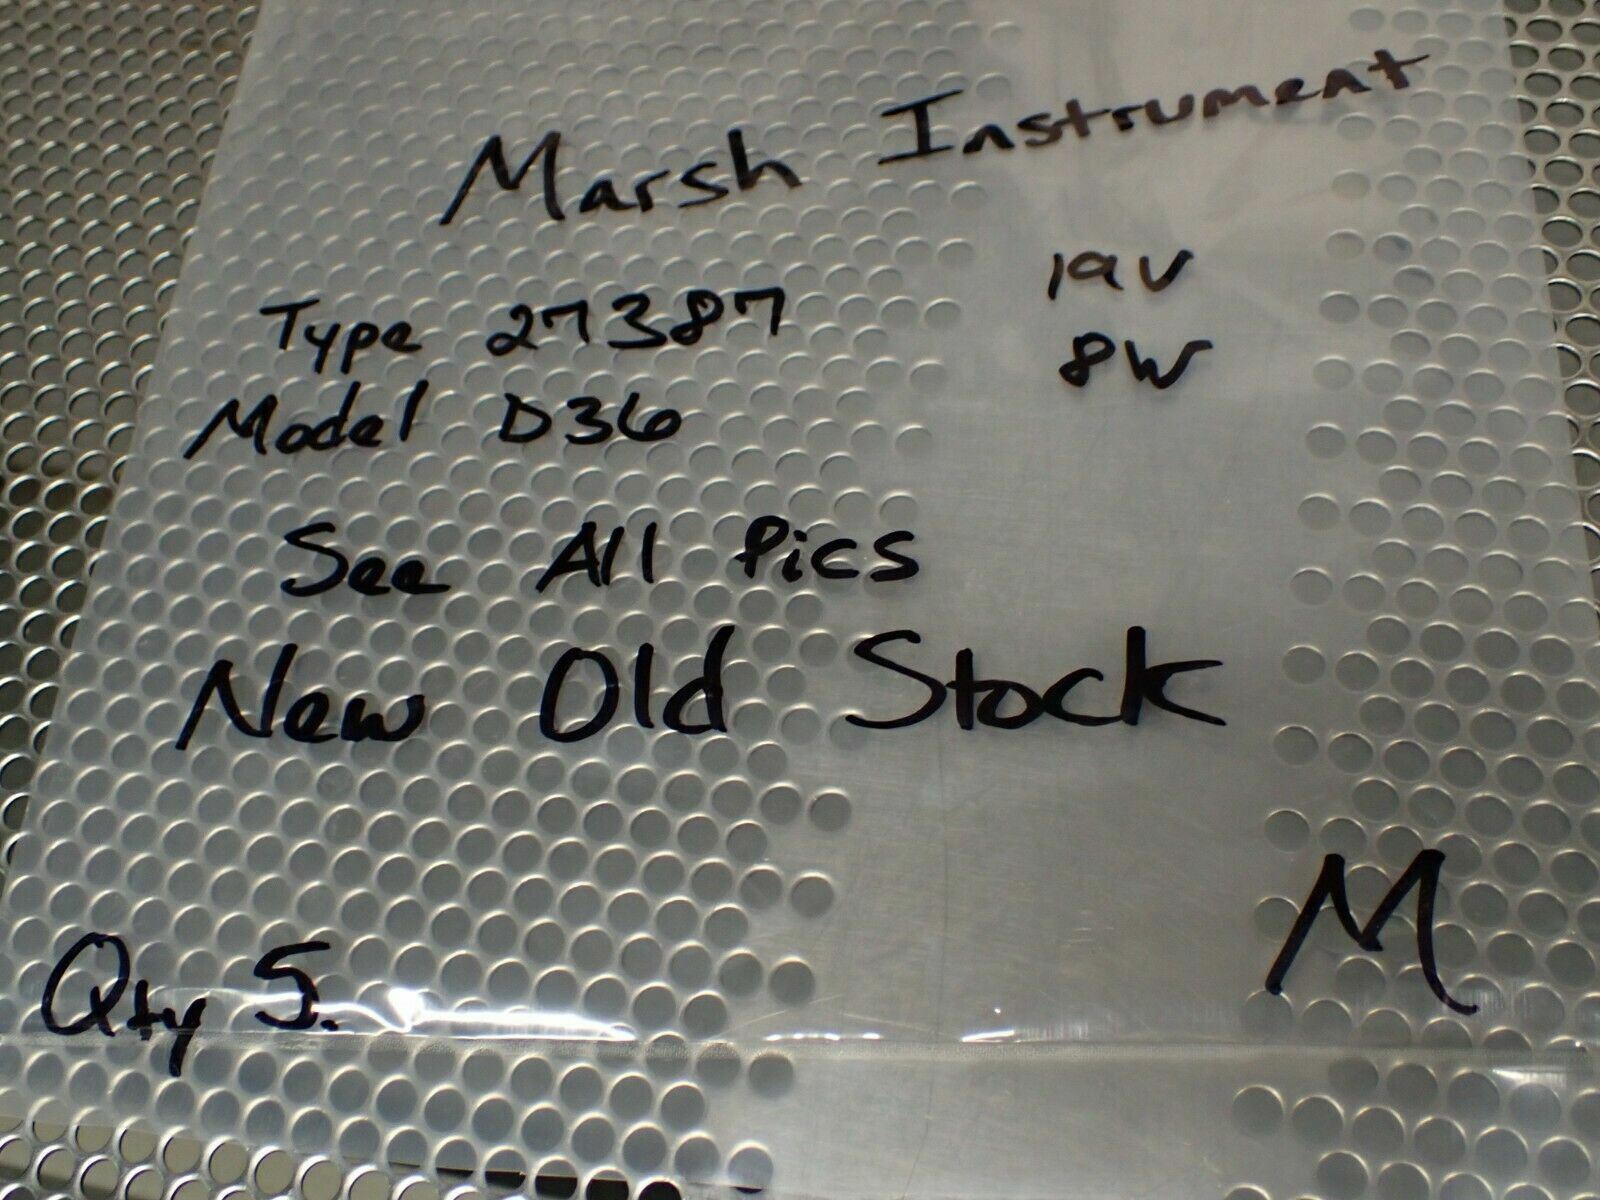 Marsh Instrument
19V
Type 27387
8W
Model D36
See All Pics
New Old Stock
M
Qty 5.